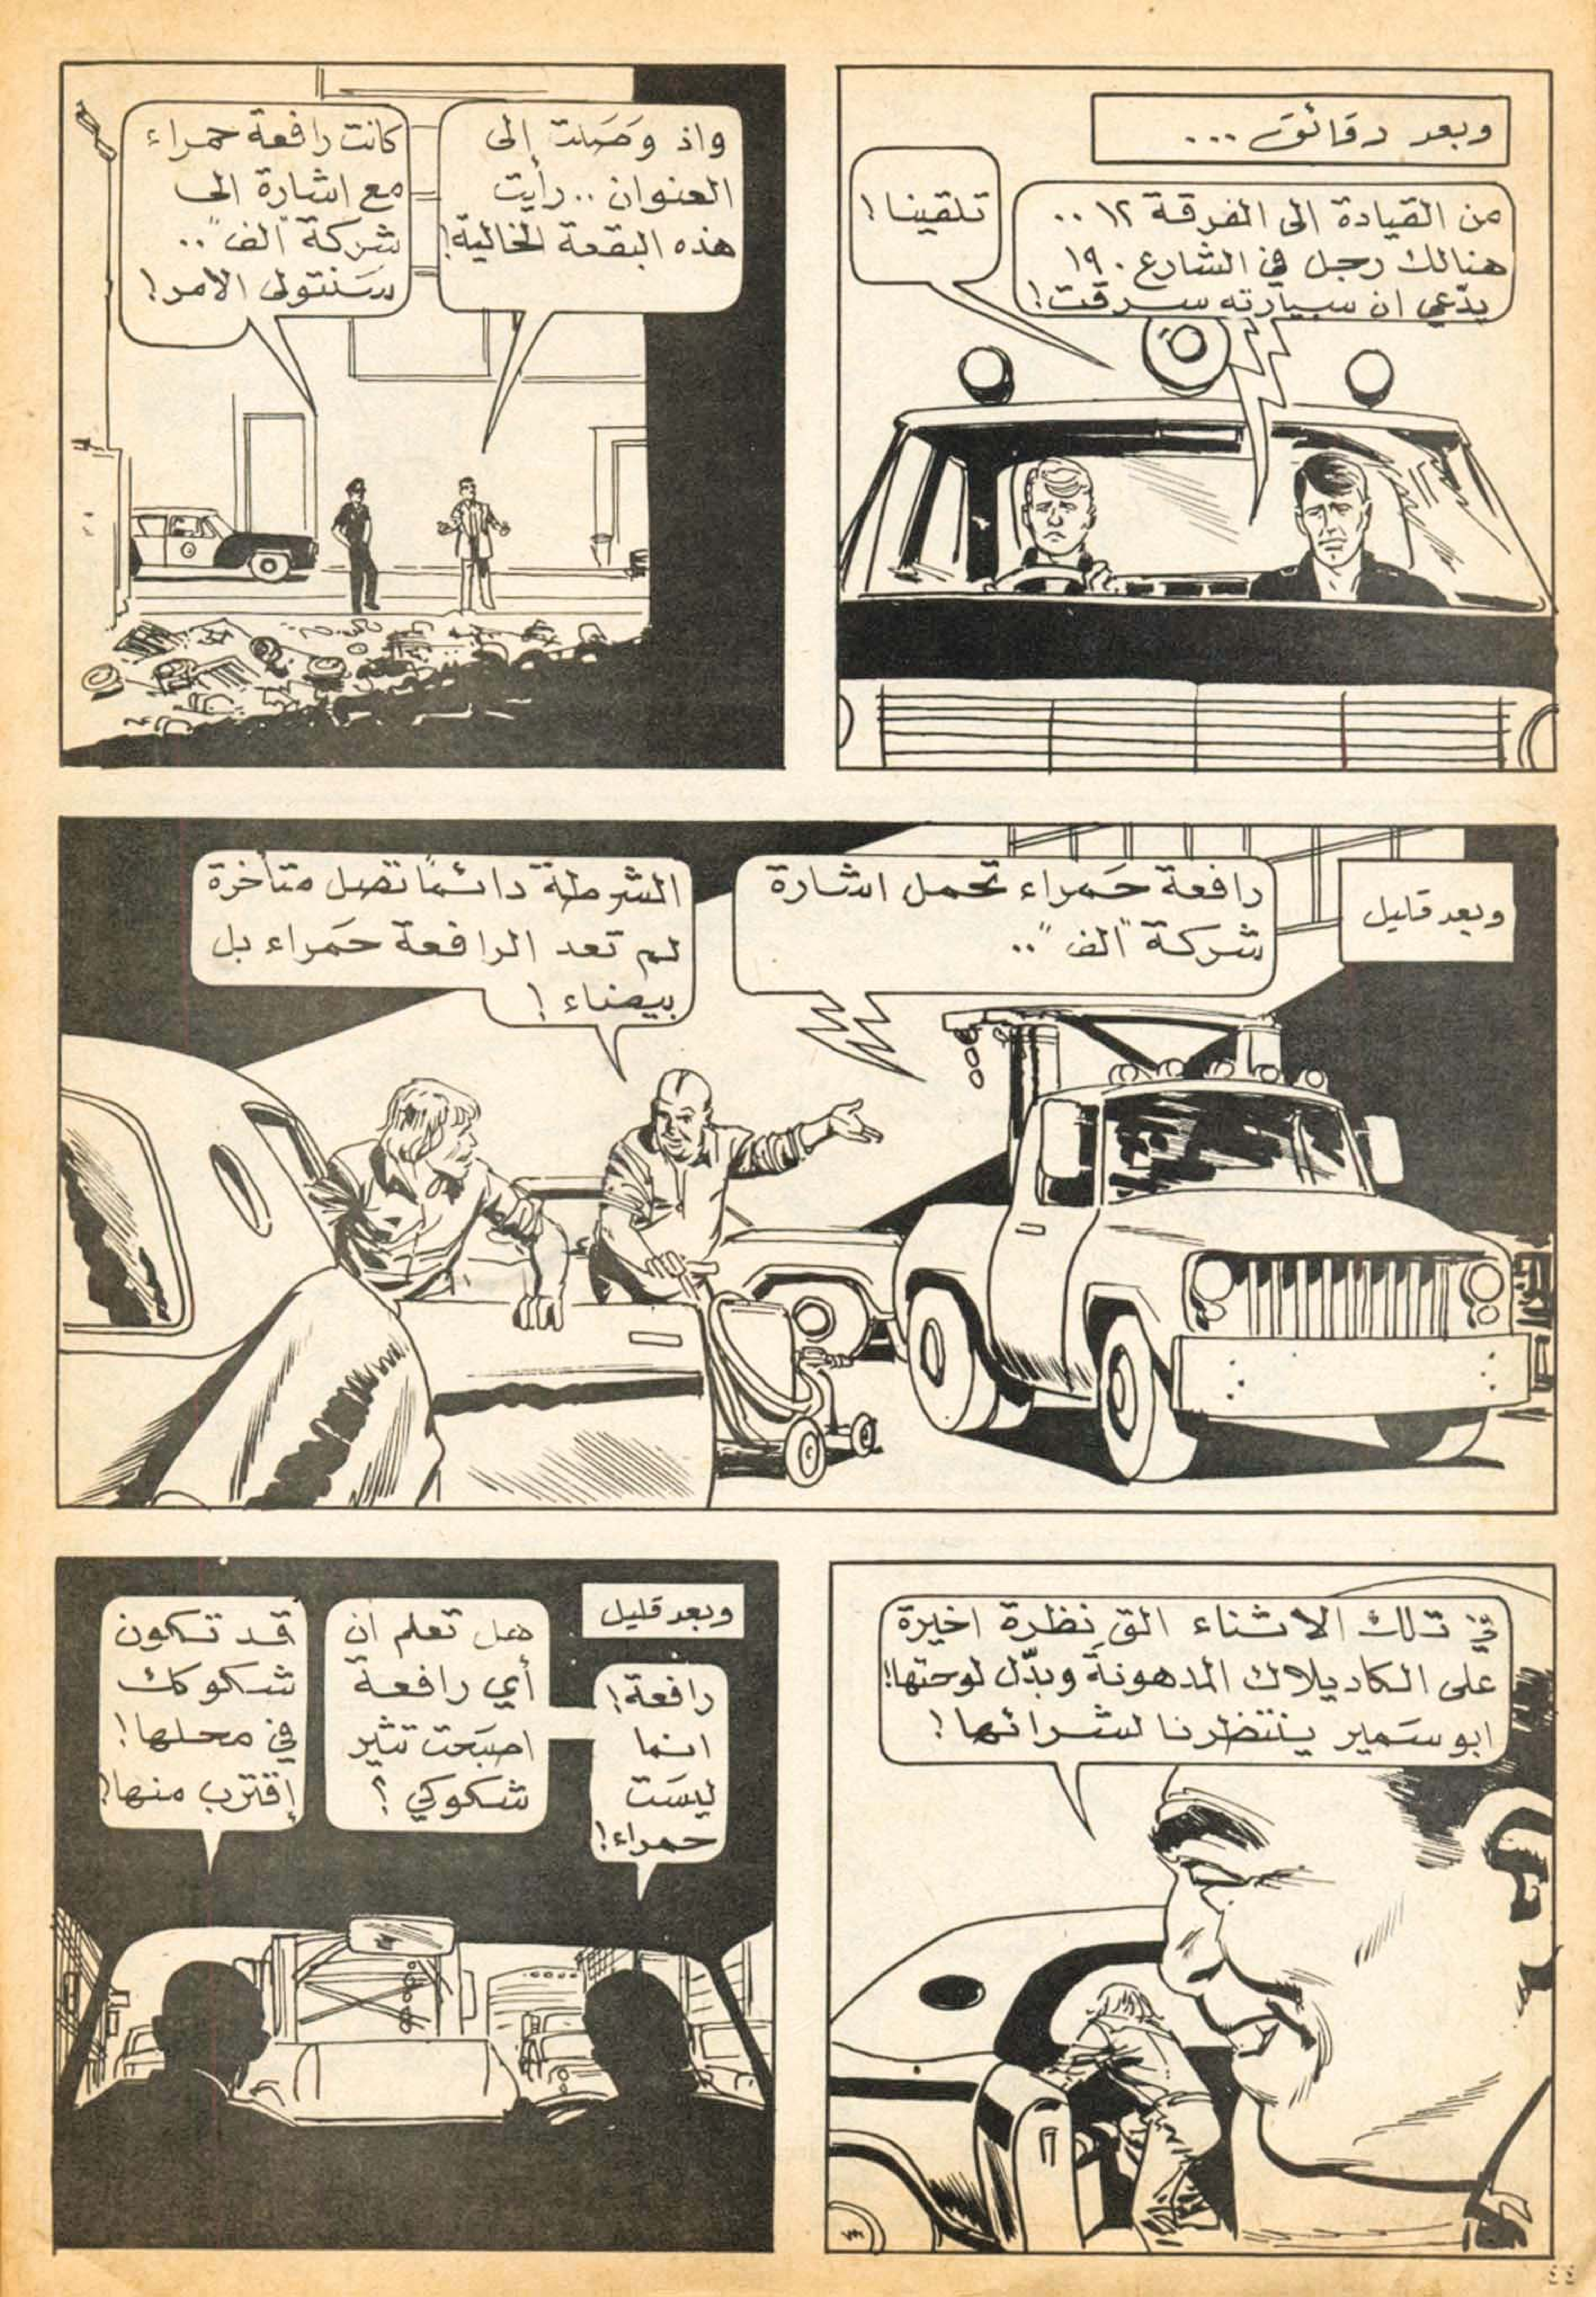 وبعد دقائق ...
من القيادة الى الفرقة ١٢ ..
هنالك رجل في الشارع ١٩٠
يدّعي ان سيارته سرقت!
تلقينا!
واذ وَصَلت إلى
العنوان .. رأيت
هذه البقعة الخالية!
كانت رافعة حمراء
مع اشارة الى
شركة "الف" ..
سَنتولى الامر!
وبعد قليل
رافعة حَمراء تحمل اشارة
شركة "الف" ..
الشرطة دائمًا تصل متأخرة
لم تعد الرافعة حَمراء بل
بيضاء!
في تلك الاثناء القِ نظرة اخيرة
على الكاديلاك المدهونةَ وبدّل لوحتها!
ابو سَمير ينتظرنا لشرائها!
وبعد قليل
رافعة!
انما
ليسَت
حمراء!
هل تعلم ان
أي رافعة
اصبَحت تثير
شكوكي؟
قد تكون
شكوكك
في محلها!
إقترب منها!
٤٤